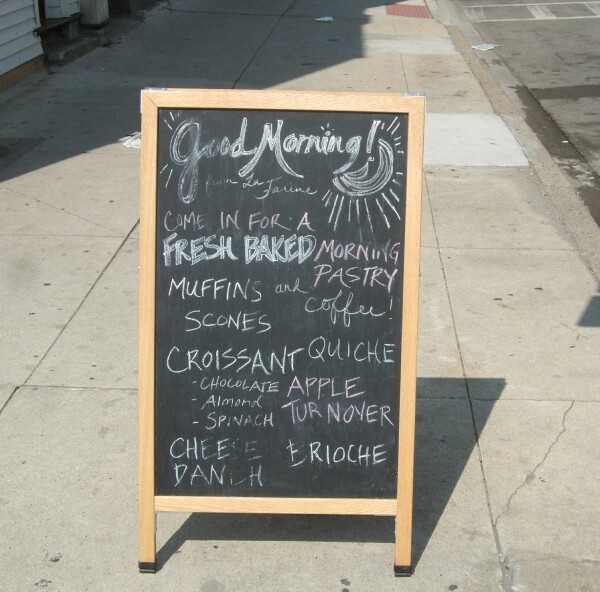 Good Morning!
from La Farine
COME IN FOR A
FRESH BAKED MORNING
PASTRY
and coffee!
MUFFINS
SCONES
CROISSANT
- CHOCOLATE
- Almond
- SPINACH
CHEESE
DANISH
QUICHE
APPLE
TURNOVER
BRIOCHE